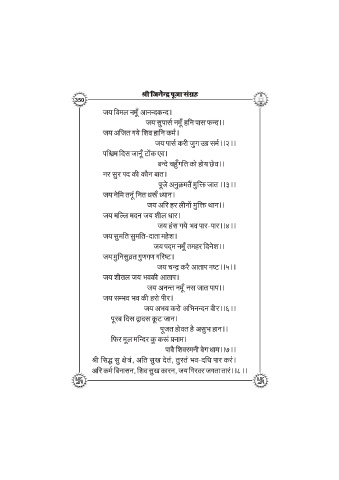 श्री जिनेन्द्र पूजा संग्रह
350
जय विमल नमूँ आनन्दकन्द।
जय सुपार्स नमूँ हनि पास फन्द।।
जय अजित गये शिव हानि कर्म।
जय पार्स करी जुग उग्र सर्म।।२।।
पश्चिम दिस जानूँ टोंक एव।
बन्दे चहुँगति को होय छेव।।
नर सुर पद की कौन बात।
पूजे अनुक्रमतैं मुक्ति जात।।३।।
जय नेमि तनूं नित धर्सं ध्यान।
जय अरि हर लीनों मुक्ति थान।।
जय मल्लि मदन जय शील धार।
जय हंस गये भव पार-पार।।४।।
जय सुमति सुमति-दाता महेश।
जय पद्म नमूँ तमहर दिनेश।।
जय मुनिसुव्रत गुणगण गरिष्ट।
जय चन्द्र करै आताप नष्ट।।५।।
जय शीतल जय भवकी आताप।
जय अनन्त नमूँ नस जात पाप।।
जय सम्भव भव की हरो पीर।
जय अभय करो अभिनन्दन वीर।।६।।
पूरब दिस द्वादस कूट जान।
पूजत होवत है असुभ हान।।
फिर मूल मन्दिर कू करू प्रनाम।
पावै शिवरमनी वेग धाम।।७।।
श्री सिद्ध सु क्षेत्रं, अति सुख देतं, तुरतं भव-दधि पार करं।
अरि कर्म बिनासन, शिव सुख कारन, जय गिरवर जगता तारं।।८।।